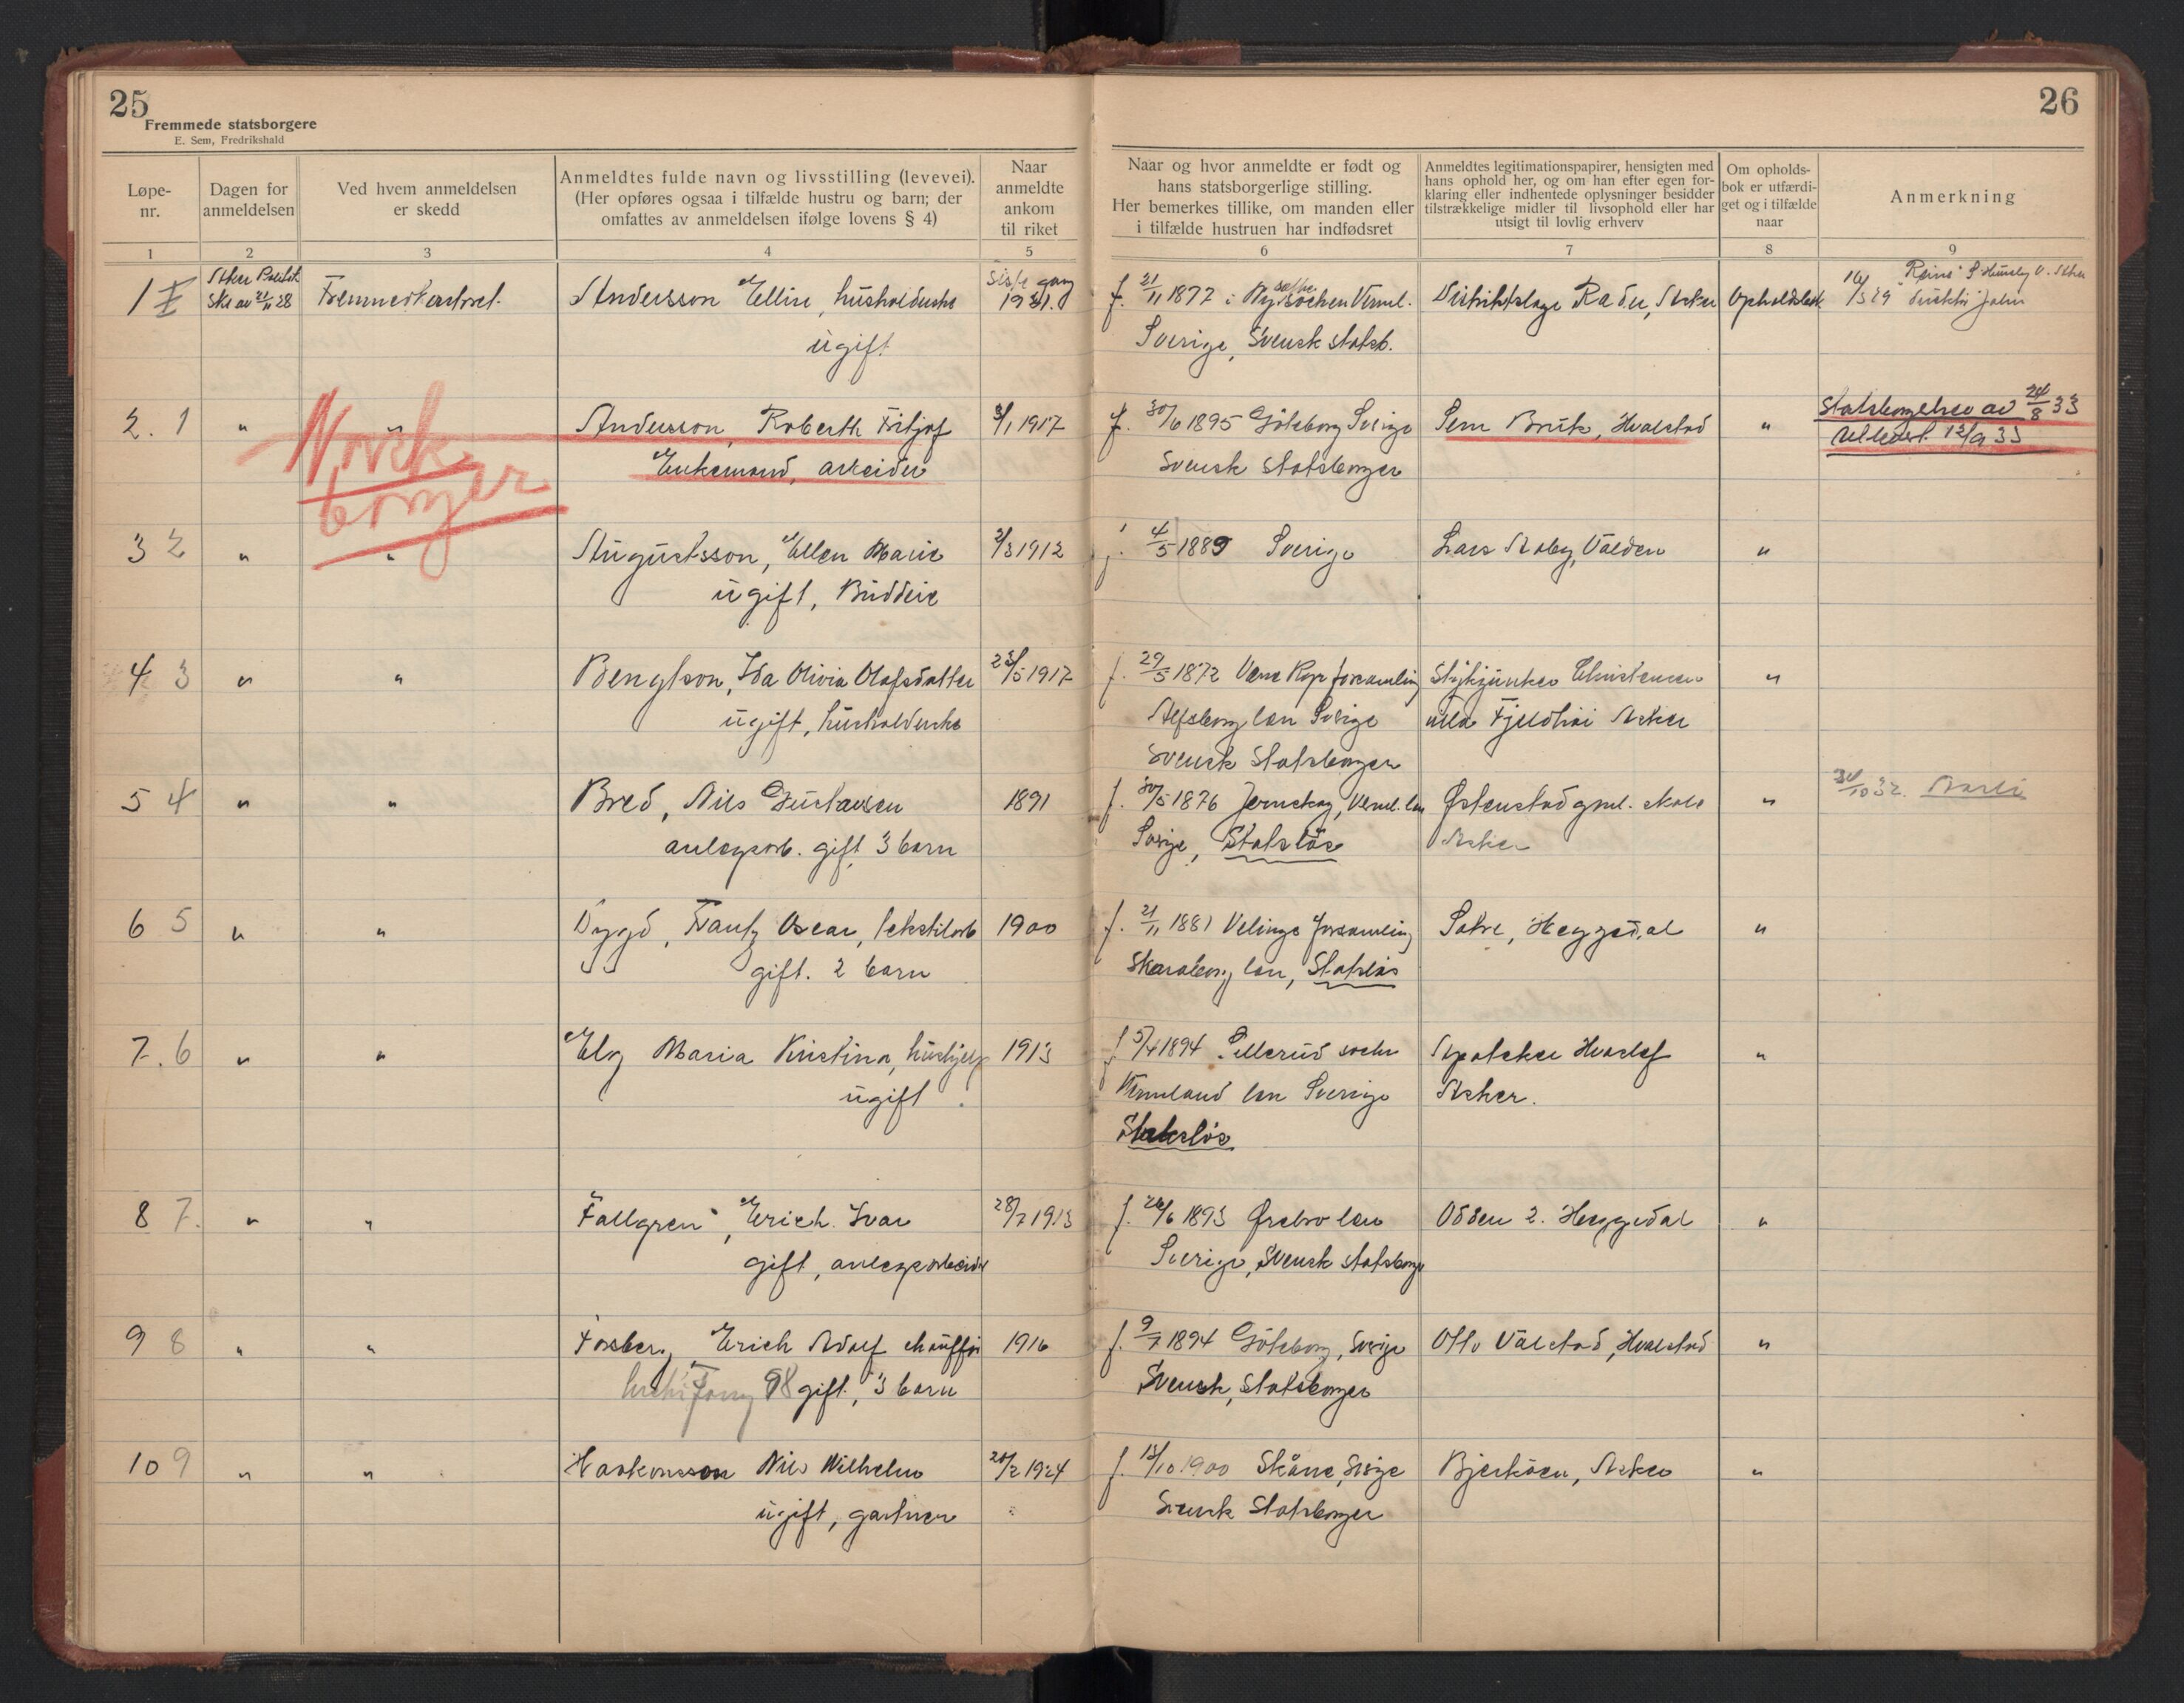 25
Fremmede statsborgere
E. Sem, Fredrikshald
26
Løpe-
nr.
Dagen for
anmeldelsen
Ved hvem anmeldelsen
er skedd
Anmeldtes fulde navn og livsstilling (levevei).
(Her opføres ogsaa i tilfælde hustru og barn; der
omfattes av anmeldelsen ifølge lovens § 4)
Naar
anmeldte
ankom
til riket
Naar og hvor anmeldte er født og
hans statsborgerlige stilling.
Her bemerkes tillike, om manden eller
i tilfælde hustruen har indfødsret
Anmeldtes legitimationspapirer, hensigten med
hans ophold her, og om han efter egen for-
klaring eller indhentede oplysninger besidder
tilstrækkelige midler til livsophold eller har
utsigt til lovlig erhverv
Om opholds-
bok er utfærdi-
get og i tilfælde
naar
Anmerkning
1 2 3 4 5 6 7 8 9
1 I Asker Politik Skr av 21/11 28 Fremmedkontoret. Andersson Elline, husholderske sisste gang 1921. f. 21/11 1877 i Ny Verml. Asker Opholdsbok 16/3 29
ugift Sverige, Svensk statsb.
2. 1 " " Andersson, Roberth Fritjof 3/1 1917 f. 30/6 1895 Göteborg Sverige Sem Bruk, Hvalstad " Statsborgerbrev av 24/8 33
Enkemand, arbeider Svensk Statsborger utlevert 12/9 33
Norsk
borger
3 2 " " Augustsson, Ellen Marie 2/3 1912 f. 4/5 1889 Sverige Lars Valden "
ugift, Budeie
4 3 " " Bengtson, Ida Olivia Olafsdatter 23/5 1917 f. 29/5 1872 forsamling Christensen "
ugift, husholderske Alfsborg len Sverige villa Fjeldhøi Asker
Svensk Statsborger
5 4 " " Bred, Nils Gustavsen 1891 f. 30/5 1876 Jernskog, Verml. len Østenstad gml. skole " 31/10 32.
anlegsarb. gift, 3 barn Sverige, Statsløs Asker
6 5 " " Dygd, Frantz Oscar, tekstilarb 1900 f. 21/11 1881 Velinge forsamling Sætre, Heggedal "
gift. 2 barn Skaraborg len, Statsløs
7. 6 " " Elg Maria Kristina, hushjelp 1913 f 5/4 1894 Sillerud sochn Apoteker Asker.
ugift. Vermland len Sverige
Statsløs
8 7. " " Fallgren, Erich Ivar 28/7 1913 f. 26/6 1893 Ørebro len Odden 2. Heggedal "
gift, anlegsarbeider Sverige, Svensk statsborger
9 8 " " Forsberg Erich Adolf chauffør 1916 f. 9/7 1894 Göteborg, Sverige Otto Valstad, Hvalstad "
98 gift, 3 barn Svensk, Statsborger
10 9 " " Haakonsson Nils Wilhelm 20/2 1924 f. 13/10 1900 Skåne, Sverige Bjerkåsen, Asker "
ugift, gartner Svensk Statsborger